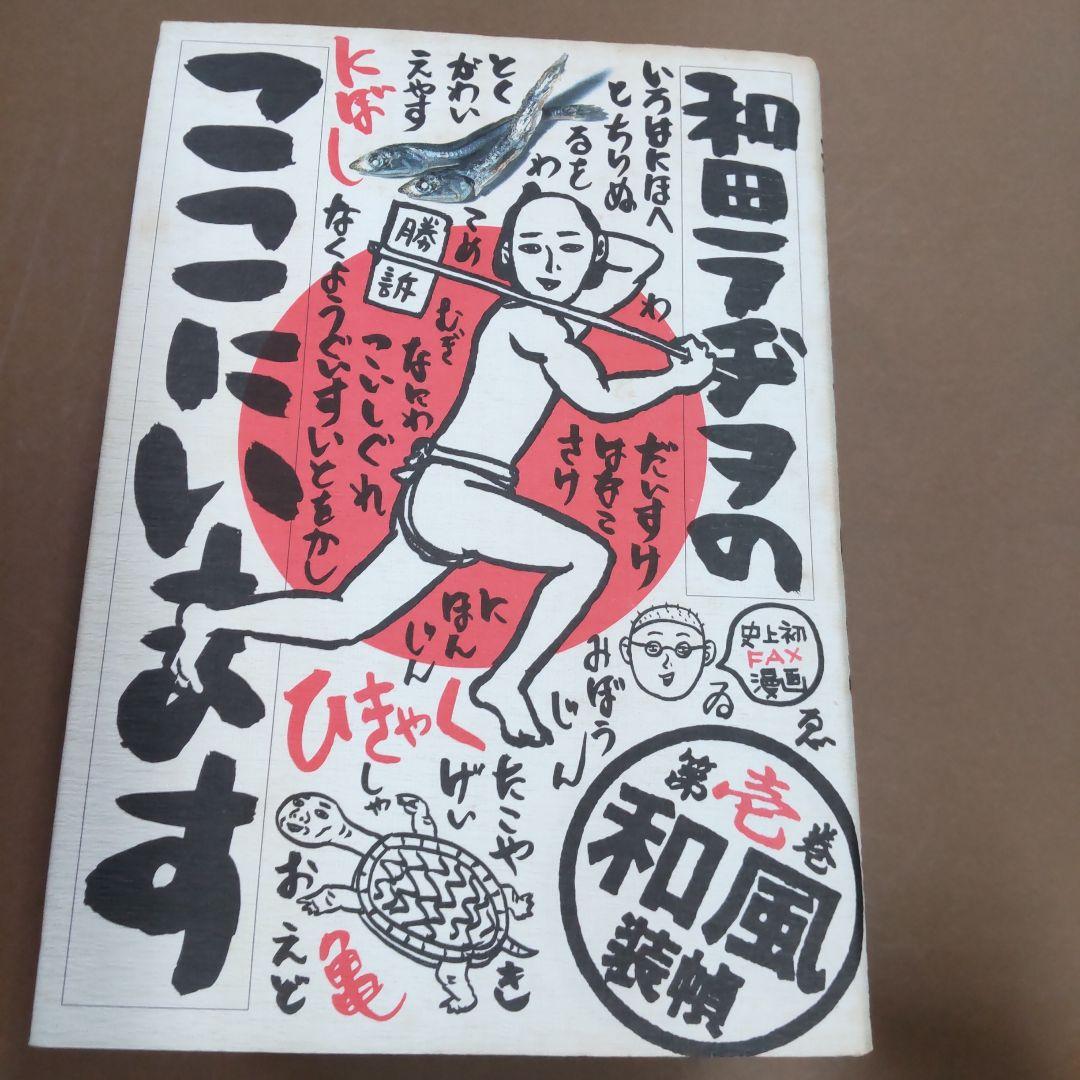 和田ラヂヲの
ここにいます
いろはにほへ
とちりぬ
るを
わ
とく
がわい
えやす
にぼし
勝
訴
こめ
むぎ
なにわ
こいしぐれ
なくようぐいすいとをかし
わ
だいすけ
はなこ
さけ
に
ほん
じん
みぼうじん
ゐ
ゑ
史上初
FAX
漫画
ひきゃく
げい
しゃ
たこや
き
お
えど
亀
第壱巻
和風
装幀